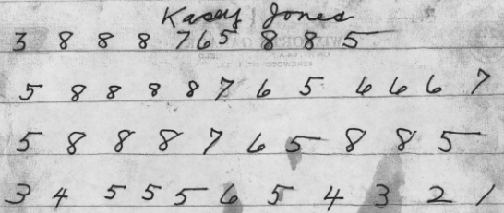 Kasey Jones
3 8 8 8 7 6 5 8 8 5
5 8 8 8 8 7 6 5 6 6 6 7
5 8 8 8 7 6 5 8 8 5
3 4 5 5 5 6 5 4 3 2 1